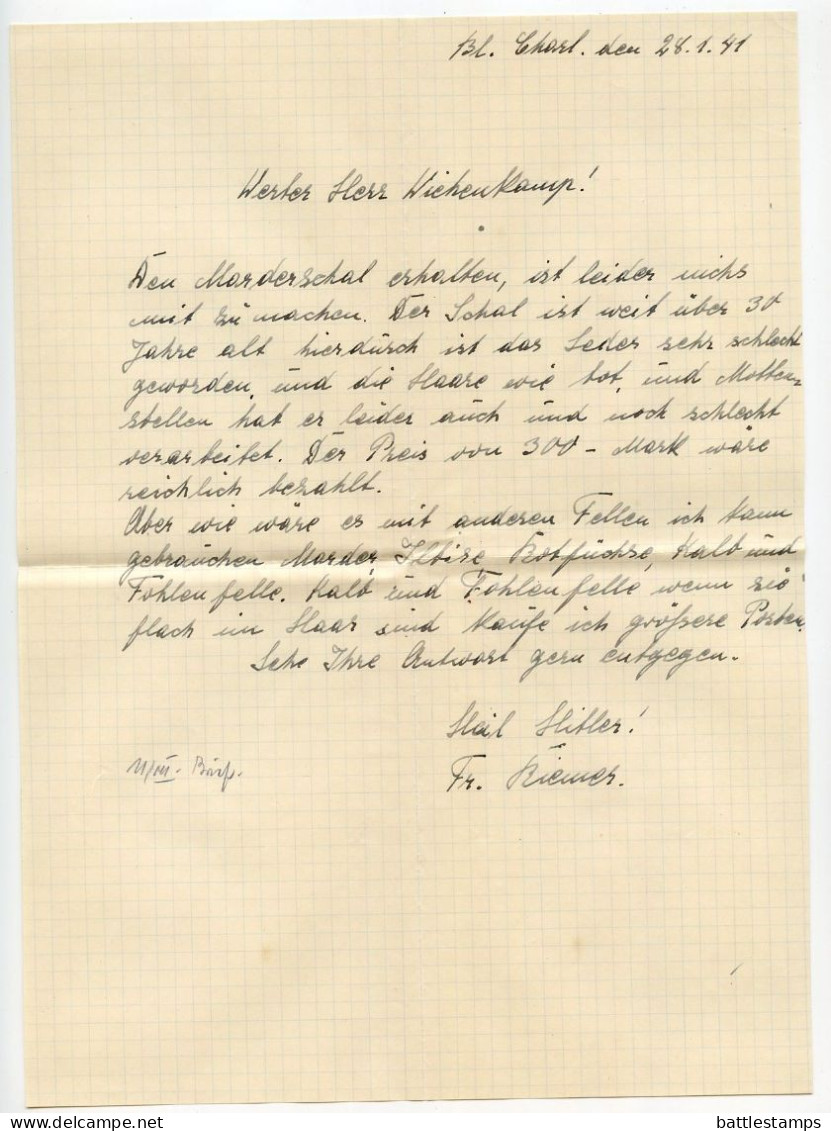 Bl. Charl. den 28.1.41
Werter Herr Wiekenkamp!
Den Marderschal erhalten, ist leider nichs
mit zu machen. Der Schal ist weit über 30
Jahre alt hierdurch ist das Leder sehr schlecht
geworden, und die Haare wie tot, und Motten=
stellen hat er leider auch und noch schlecht
verarbeitet. Der Preis von 300 - Mark wäre
reichlich bezahlt.
Aber wie wäre es mit anderen Fellen ich kann
gebrauchen Marder, Iltise, Rotfüchse, Kalb und
Fohlenfelle. Kalb und Fohlenfelle wenn sie
flach im Haar sind kaufe ich größere Posten.
Sehe Ihre Antwort gern entgegen.
Heil Hitler!
Fr. Riemer.
battlestamps